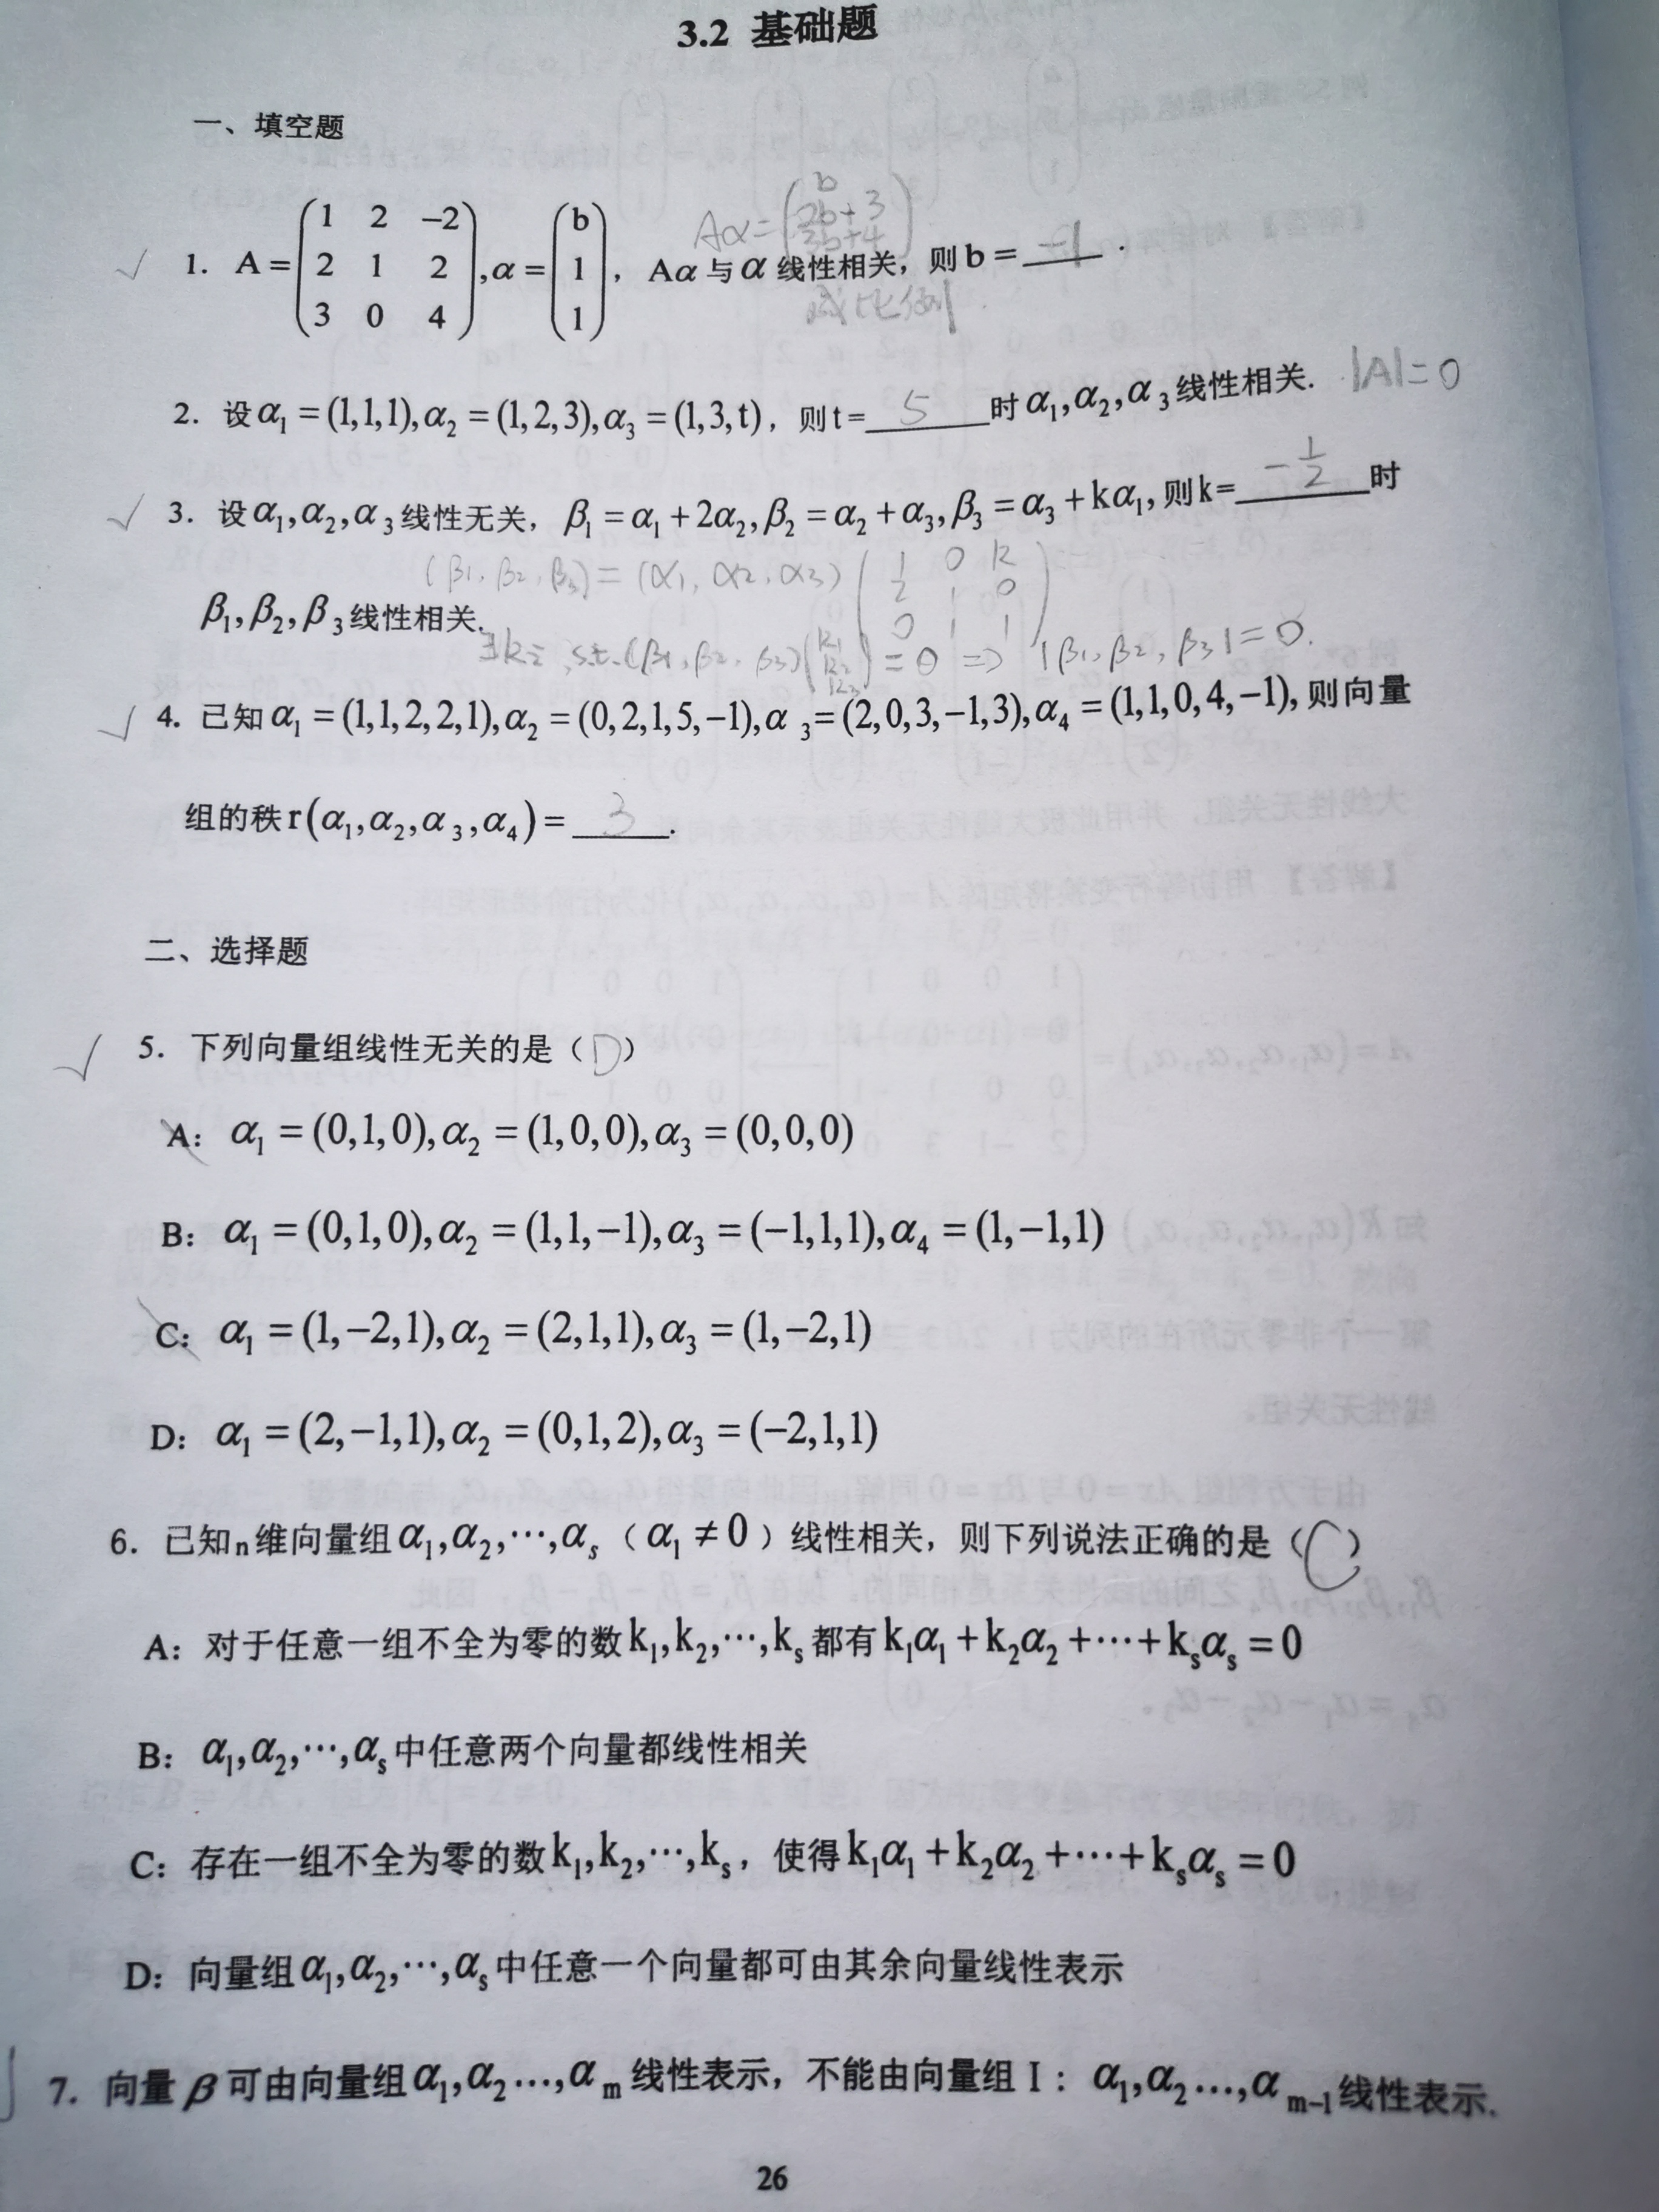 3.2 基础题
一、填空题
Aα = ( b
2b+3
3b+4 )
√ 1. A = ( 1 2 −2
2 1 2
3 0 4 ), α = ( b
1
1 ), Aα 与 α 线性相关，则 b = −1 .
成比例
2. 设 α₁ = (1,1,1), α₂ = (1,2,3), α₃ = (1,3,t)，则 t= 5 时 α₁, α₂, α₃ 线性相关. |A|=0
√ 3. 设 α₁, α₂, α₃ 线性无关， β₁ = α₁ + 2α₂, β₂ = α₂ + α₃, β₃ = α₃ + kα₁, 则 k= −1/2 时
(β₁, β₂, β₃) = (α₁, α₂, α₃) ( 1 0 k
2 1 0
0 1 1 )
β₁, β₂, β₃ 线性相关.
∃ki, s.t. (β₁, β₂, β₃) ( k₁
k₂
k₃ ) = 0 ⇒ |β₁, β₂, β₃| = 0.
√ 4. 已知 α₁ = (1,1,2,2,1), α₂ = (0,2,1,5,−1), α₃ = (2,0,3,−1,3), α₄ = (1,1,0,4,−1), 则向量
组的秩 r(α₁, α₂, α₃, α₄) = 3 .
二、选择题
√ 5. 下列向量组线性无关的是（D）
A: α₁ = (0,1,0), α₂ = (1,0,0), α₃ = (0,0,0)
B: α₁ = (0,1,0), α₂ = (1,1,−1), α₃ = (−1,1,1), α₄ = (1,−1,1)
C: α₁ = (1,−2,1), α₂ = (2,1,1), α₃ = (1,−2,1)
D: α₁ = (2,−1,1), α₂ = (0,1,2), α₃ = (−2,1,1)
6. 已知 n 维向量组 α₁, α₂, ⋯, αₛ（α₁ ≠ 0）线性相关，则下列说法正确的是（C）
A: 对于任意一组不全为零的数 k₁, k₂, ⋯, kₛ 都有 k₁α₁ + k₂α₂ + ⋯ + kₛαₛ = 0
B: α₁, α₂, ⋯, αₛ 中任意两个向量都线性相关
C: 存在一组不全为零的数 k₁, k₂, ⋯, kₛ，使得 k₁α₁ + k₂α₂ + ⋯ + kₛαₛ = 0
D: 向量组 α₁, α₂, ⋯, αₛ 中任意一个向量都可由其余向量线性表示
7. 向量 β 可由向量组 α₁, α₂ …, αₘ 线性表示，不能由向量组 I: α₁, α₂ …, αₘ₋₁ 线性表示.
26